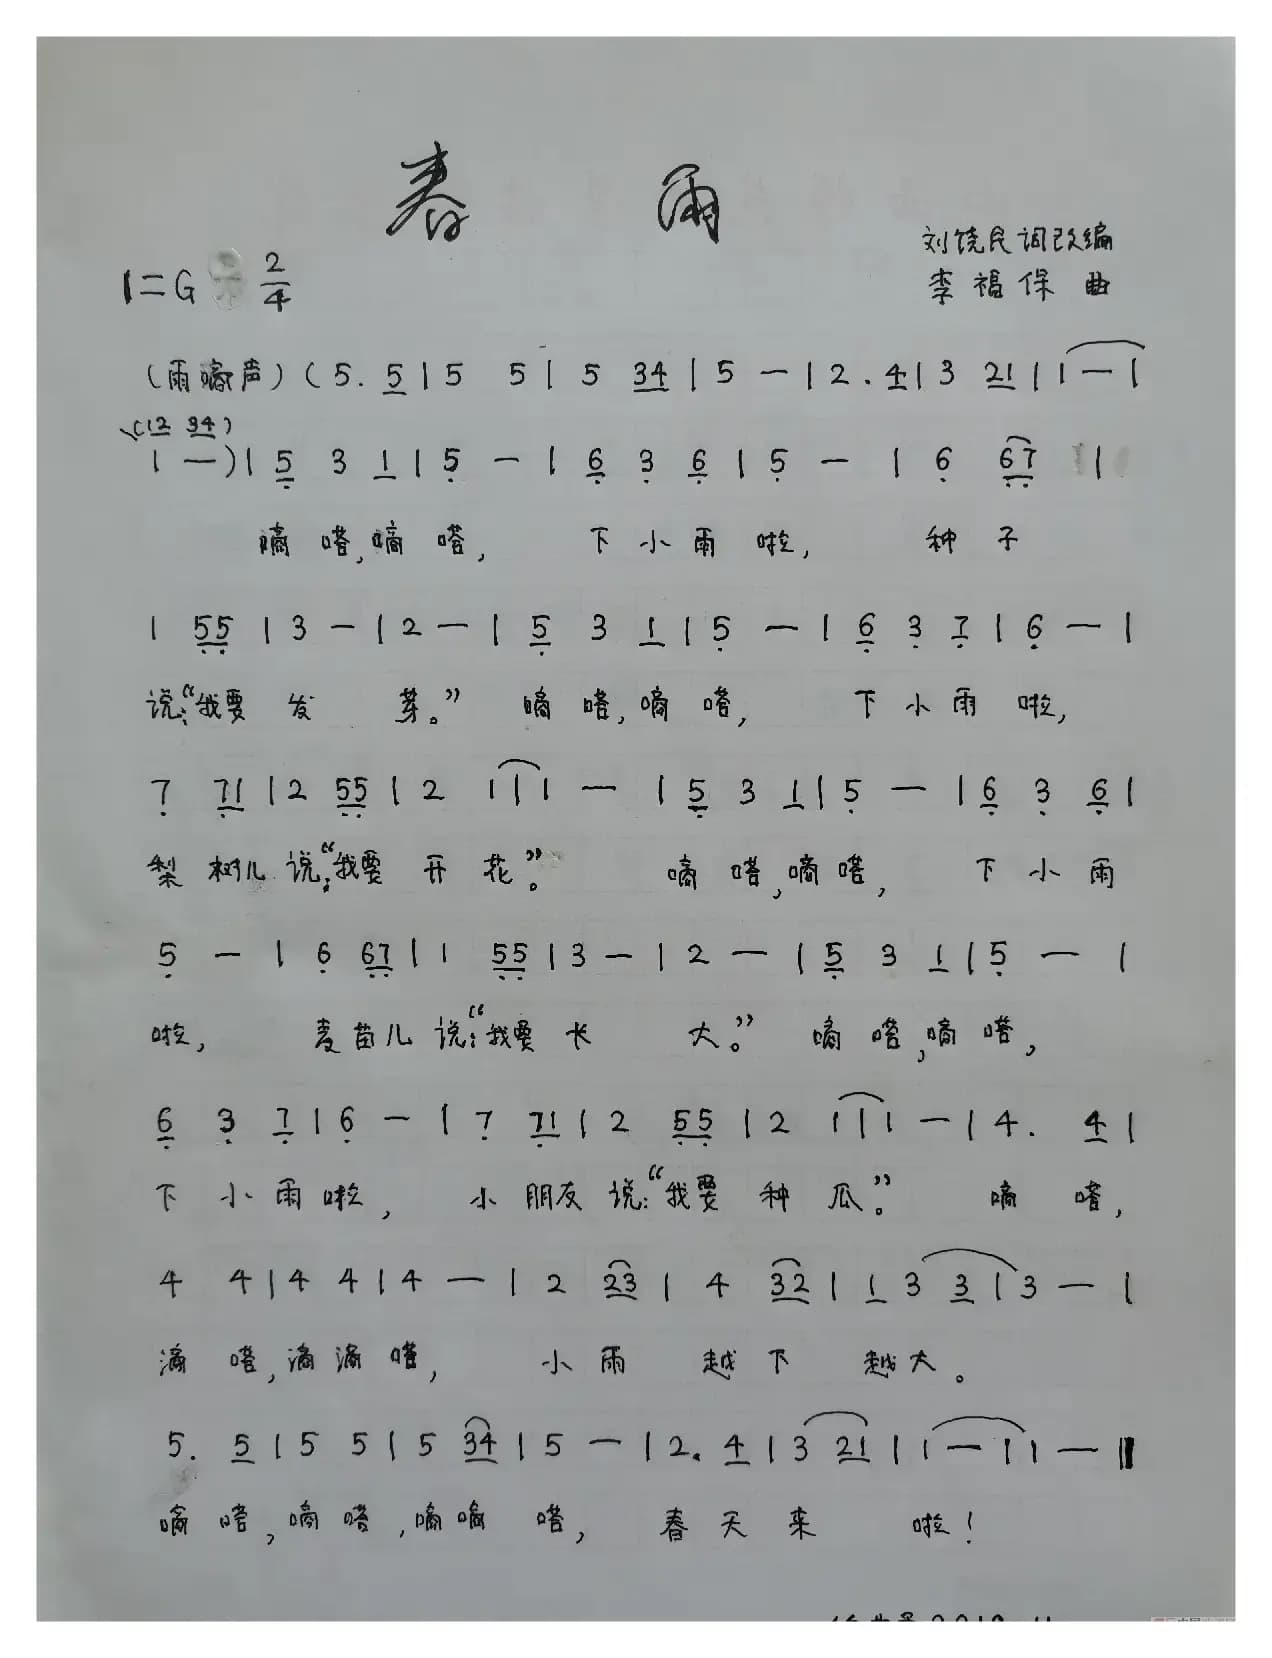 春 雨
刘饶民词改编
1=G 2/4
李福保 曲
(雨嘀声)(5. 5|5 5|5 34|5 —|2. 4|3 21|1 — |
(12 34)
1 —)|5 3 1|5 — |6 3 6|5 — |6 67 |
嘀嗒,嘀嗒, 下小雨啦, 种子
1 55|3 —|2 —|5 3 1|5 —|6 3 7|6 —|
说:“我要发 芽。” 嘀嗒,嘀嗒, 下小雨啦,
7 71|2 55|2 1|1 — |5 3 1|5 —|6 3 6|
梨树儿说:“我要开花。” 嘀嗒,嘀嗒, 下小雨
5 —|6 67|1 55|3 —|2 —|5 3 1|5 — |
啦, 麦苗儿说:“我要长 大。” 嘀嗒,嘀嗒,
6 3 7|6 —|7 71|2 55|2 1|1 —|4. 4|
下小雨啦, 小朋友说:“我要种瓜。” 嘀嗒,
4 4|4 4|4 —|2 23|4 32|1 3 3|3 —|
滴嗒,滴滴嗒, 小雨 越下 越大。
5. 5|5 5|5 34|5 —|2. 4|3 21|1 —|1 —‖
嘀嗒,嘀嗒,嘀嘀嗒, 春天来 啦!